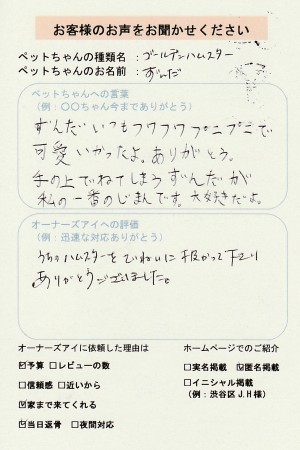 お客様のお声をお聞かせください
ペットちゃんの種類名：ゴールデンハムスター
ペットちゃんのお名前：ずんだ
ペットちゃんへの言葉
（例：〇〇ちゃん今までありがとう）
ずんだいつもフワフワプニプニで
可愛いかったよ。ありがとう。
手の上でねてしまうずんだが
私の一番のじまんです。大好きだよ。
オーナーズアイへの評価
（例：迅速な対応ありがとう）
うちのハムスターをていねいに扱かって下さり
ありがとうございました。
オーナーズアイに依頼した理由は
☑予算 □レビューの数
□信頼感 □近いから
☑家まで来てくれる
☑当日返骨 □夜間対応
ホームページでのご紹介
□実名掲載 ☑匿名掲載
□イニシャル掲載
（例：渋谷区J.H様）